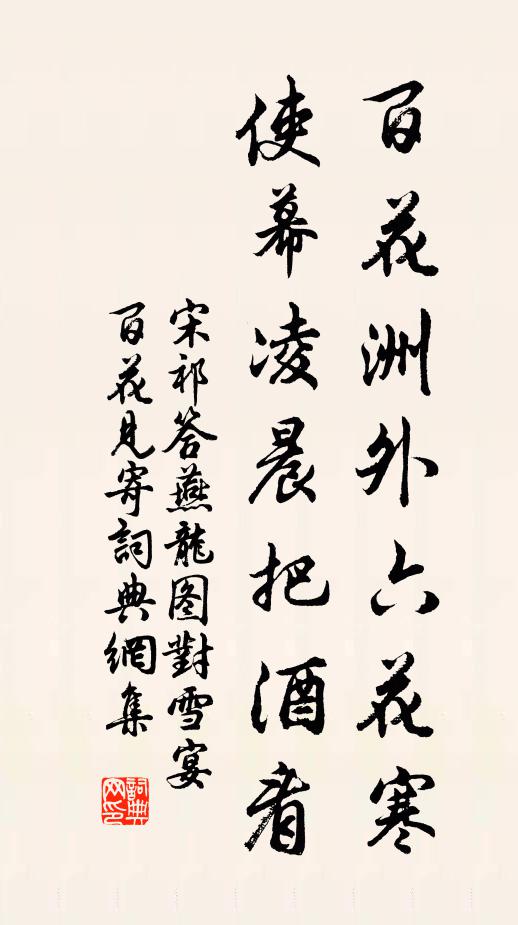 百花洲外六花寒
使幕凌晨把酒看
宋祁答燕龍图對雪宴
百花見寄詞典網集
詞典网印